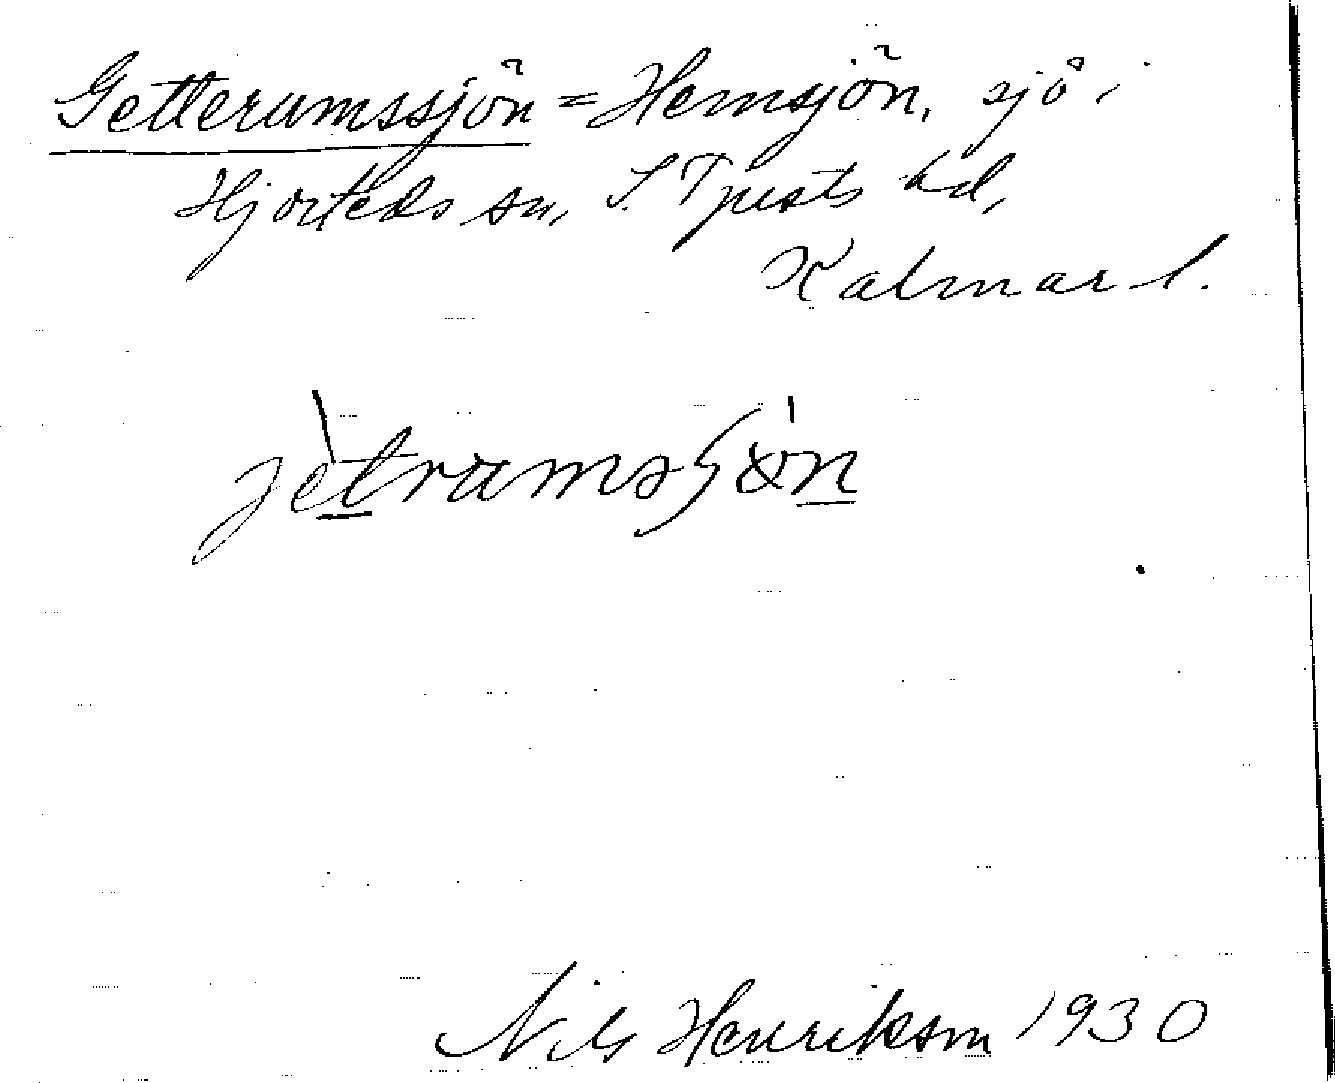 Getterumssjön = Hemsjön, sjö i
Hjorteds sn, S. Tjusts hd,
Kalmar l.
jètramsʃön
Nils Henrikson 1930